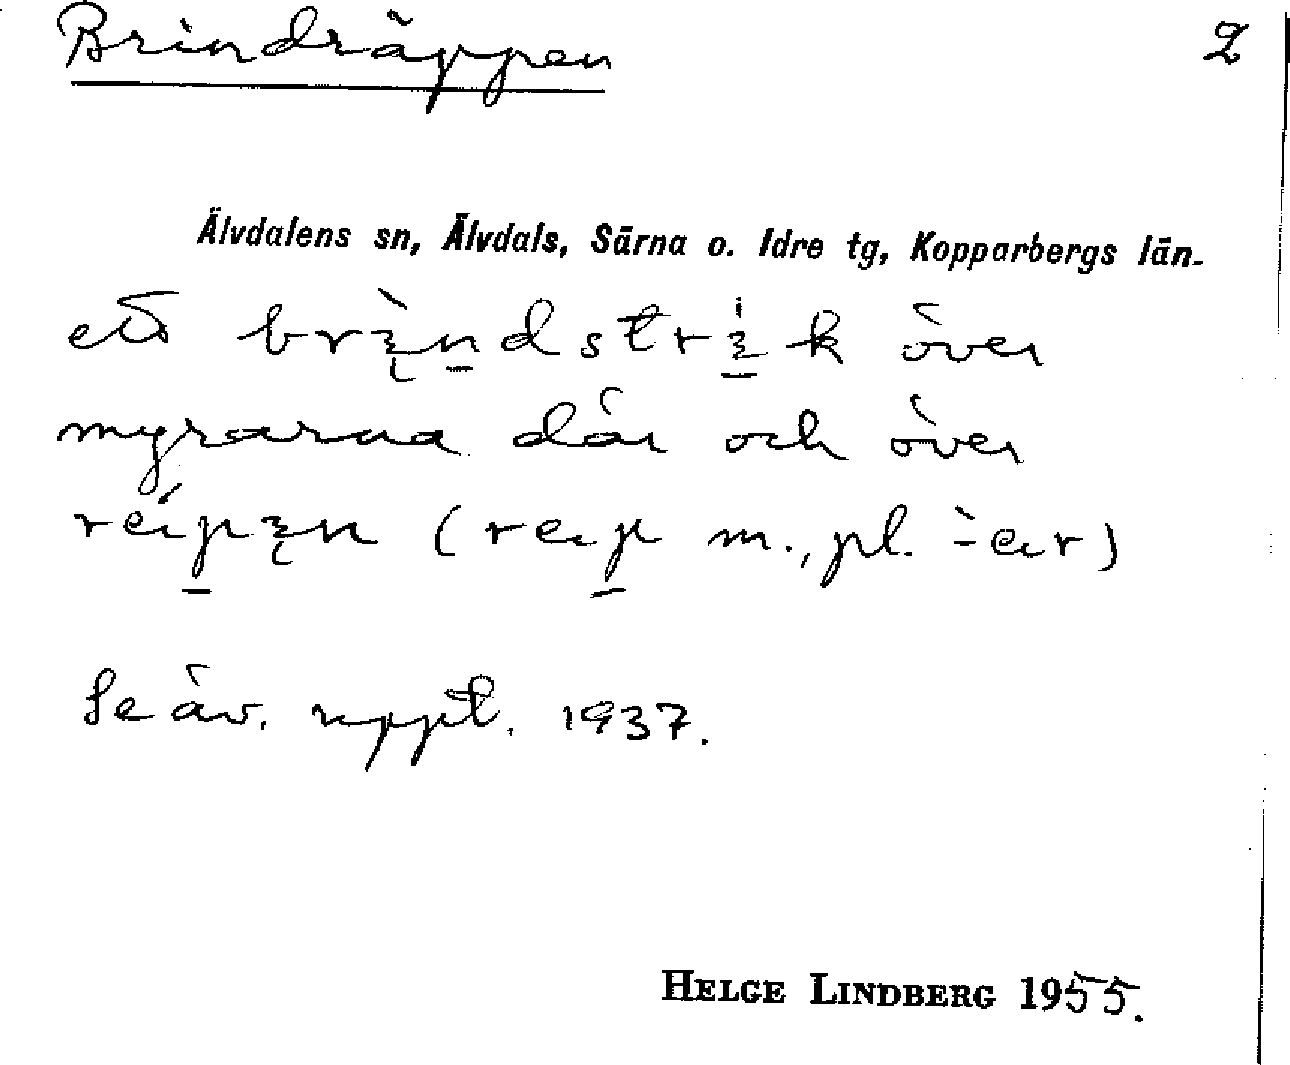 Brindräppen 2
Älvdalens sn, Älvdals, Särna o. Idre tg, Kopparbergs län.
ett över
myrarna där och över
m., pl.
Se äv. uppt. 1937.
HELGE LINDBERG 1955.